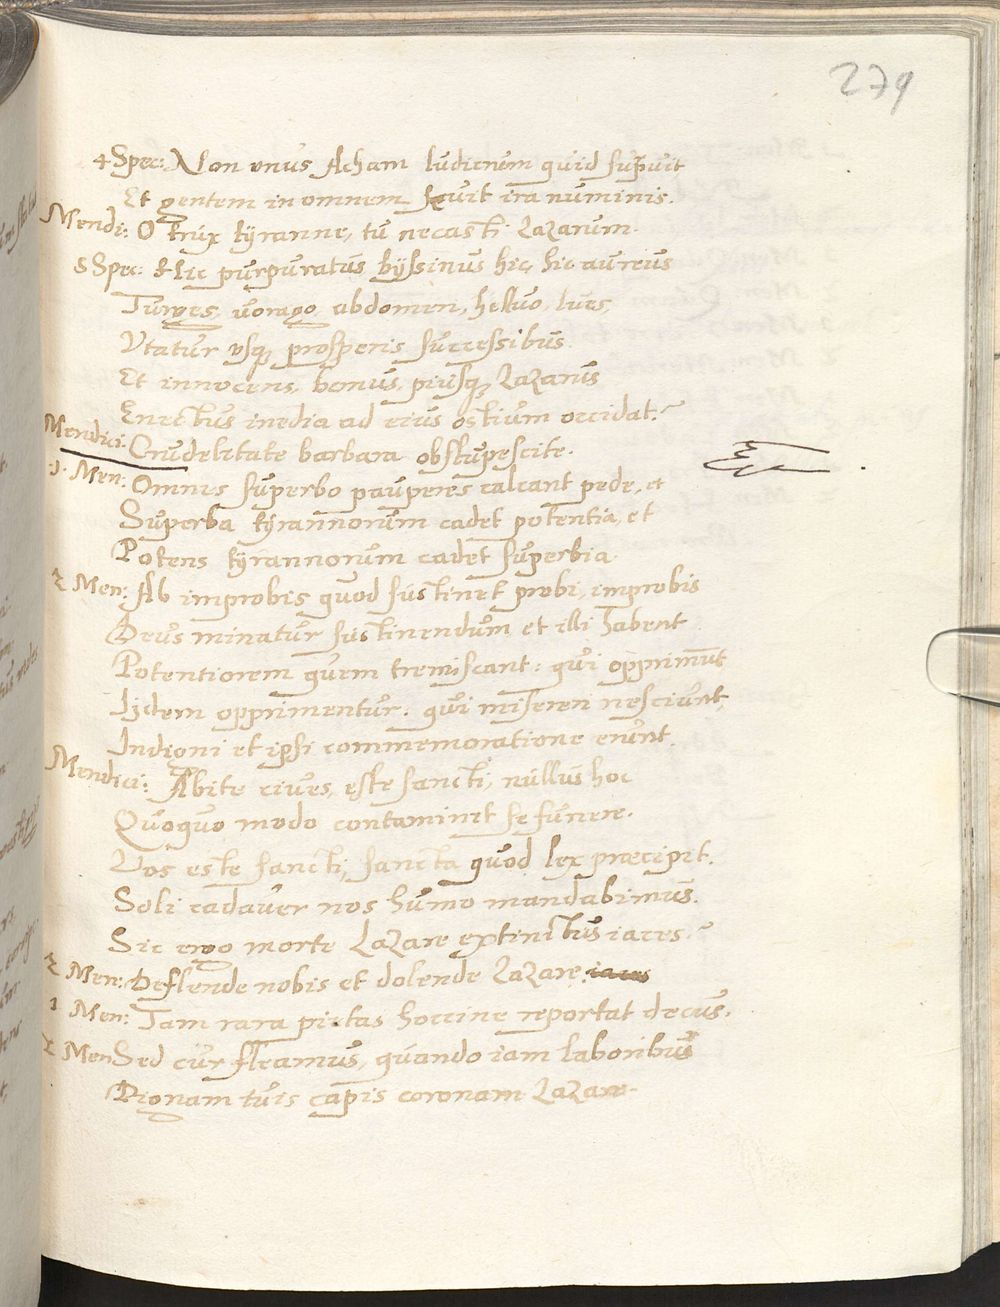 279
4 Spec: Non unus Acham ludicrum quid supuit
Et gentem in omnem sæuit ira numinis.
Mendi: O trux tyranne, tu necasti Lazarum.
5 Spec: Hic purpuratus byssinus hic, hic aureus
Turges, uorago, abdomen, helluo, lues,
Vtatur usq, prosperis successibus
Et innocens, bonus, piusq, Lazarus
Enectus inedia ad eius ostium occidat?
Mendici: Crudelitate barbara obstupescite.
1. Men: Omnes superbo pauperes calcant pede, et
Superba tyrannorum cadet potentia, et
Potens tyrannorum cadet superbia.
2 Men: Ab improbis quod sustinet probi, improbis
Deus minatur sustinendum et illi habent
Potentiorem quem tremiscant: qui opprimut
Ijdem opprimentur. qui misereri nesciunt,
Indigni et ipsi commemoratione erunt.
Mendici: Abite ciues, este sancti, nullus hoc
Quoquo modo contaminet se funere.
Vos este sancti, sancta quod lex præcepit.
Soli cadauer nos humo mandabimus.
Sic ergo morte Lazare extinctus iaces?
2 Men: Deflende nobis et dolende Lazare. iaces
1 Men: Tam rara pietas hoccine reportat decus.
2 Men Sed cur fleamus, quando iam laboribus
Dignam tuis capis coronam Lazare.